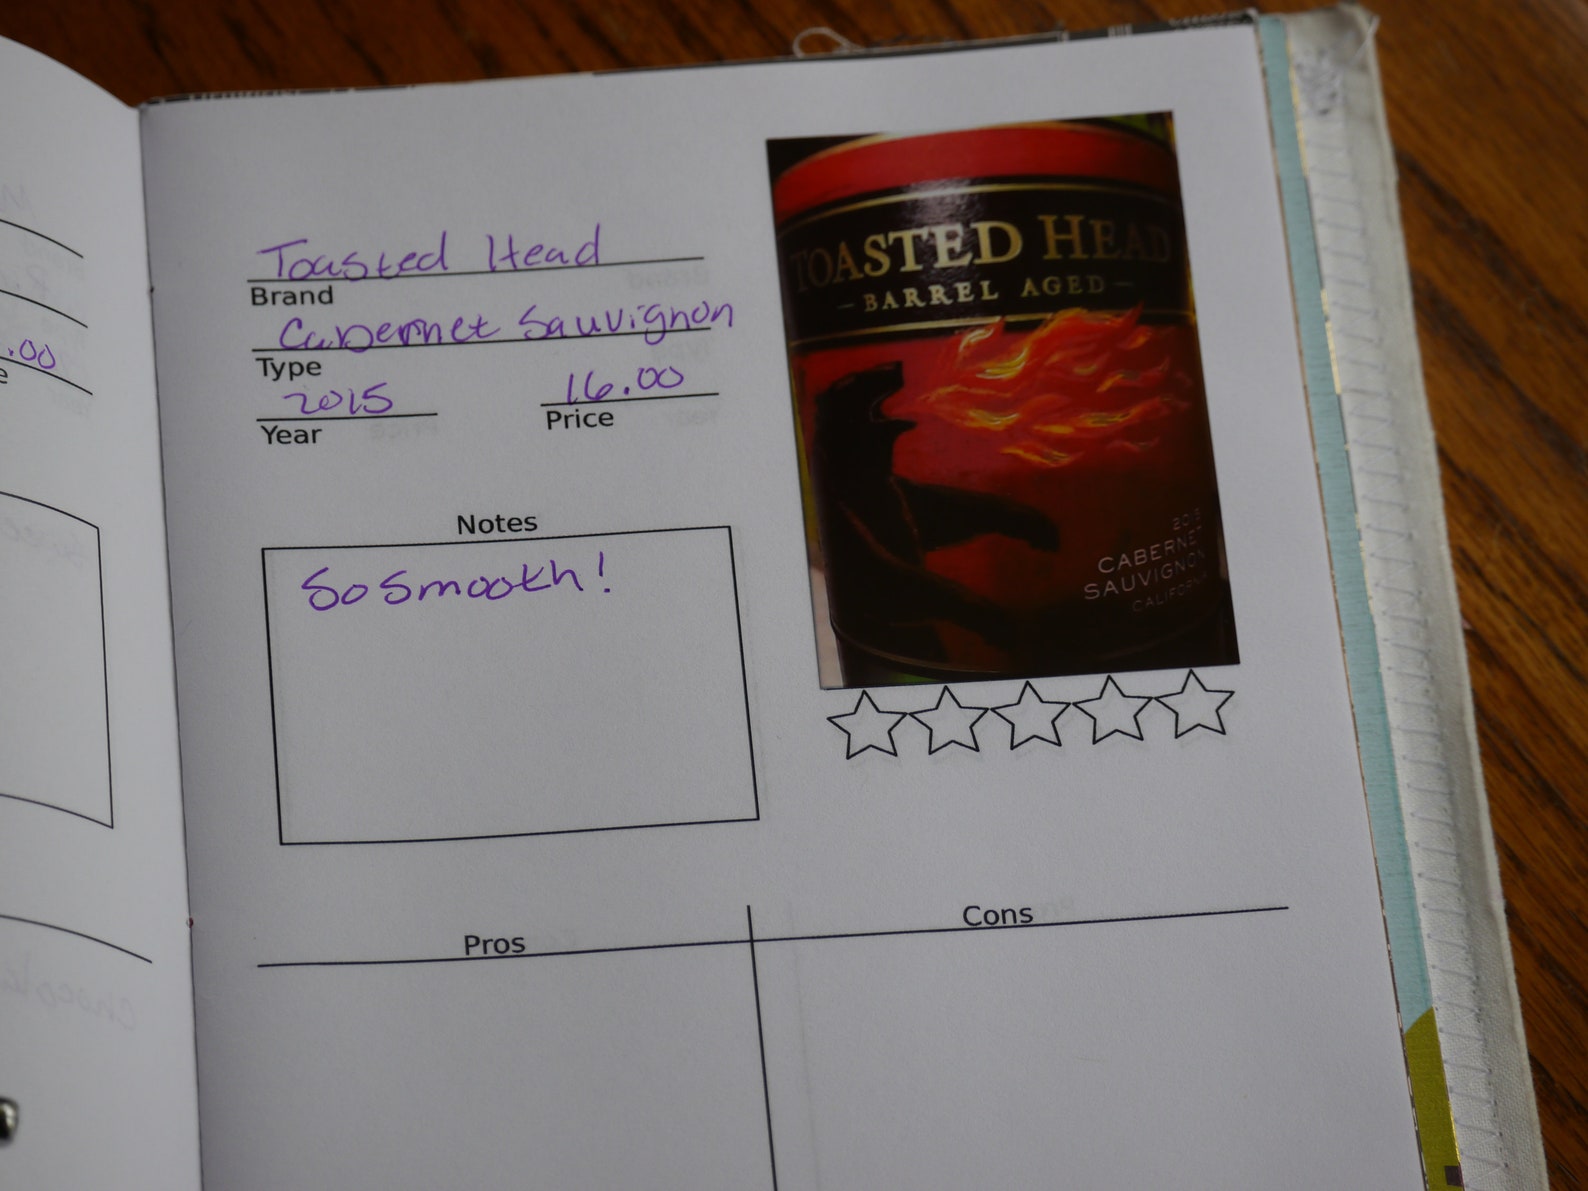 .00
e
Toasted Head
Brand
Cabernet Sauvignon
Type
2015
16.00
Year
Price
Notes
So Smooth!
TOASTED HEAD
BARREL AGED
2015
CABERNET
SAUVIGNON
CALIFORNIA
Pros
Cons